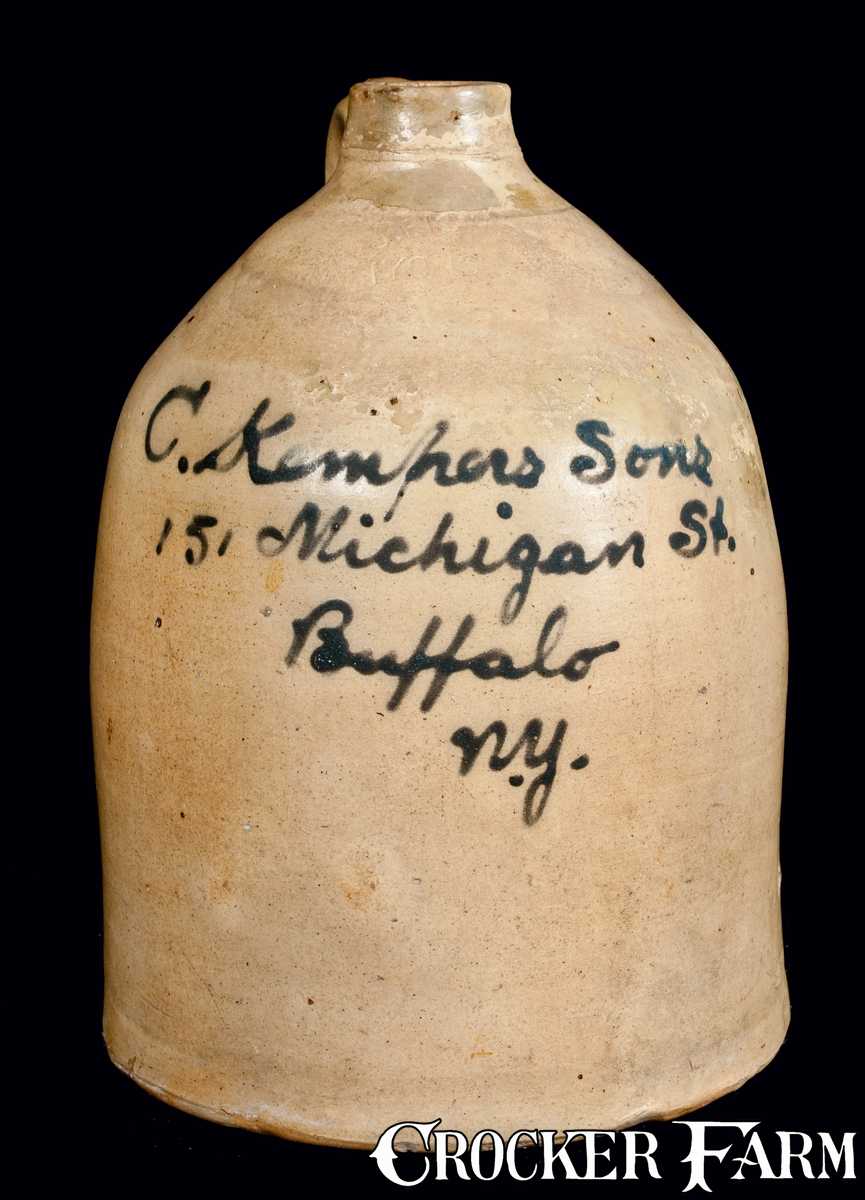 C. Kempers Sons
151 Michigan St.
Buffalo
N.Y.
CROCKER FARM